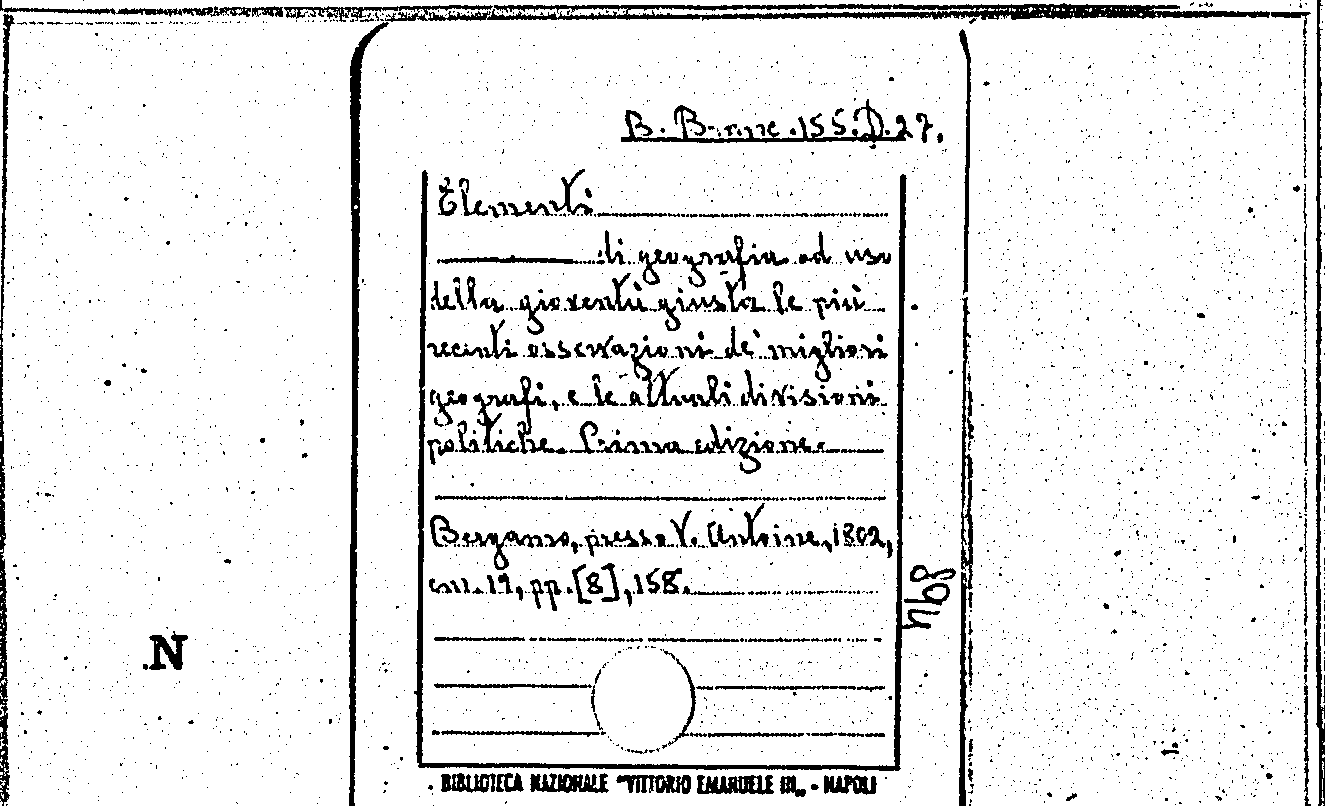 B. Branc. 155.D.27.
Elementi
di geografia ad uso
della gioventù giusta le più
recenti osservazioni de' migliori
geografi, e le attuali divisioni
politiche. Prima edizione.
Bergamo, presso V. Antoine, 1802,
cm. 19, pp. [8], 158.
N
BIBLIOTECA NAZIONALE "VITTORIO EMANUELE III„ - NAPOLI